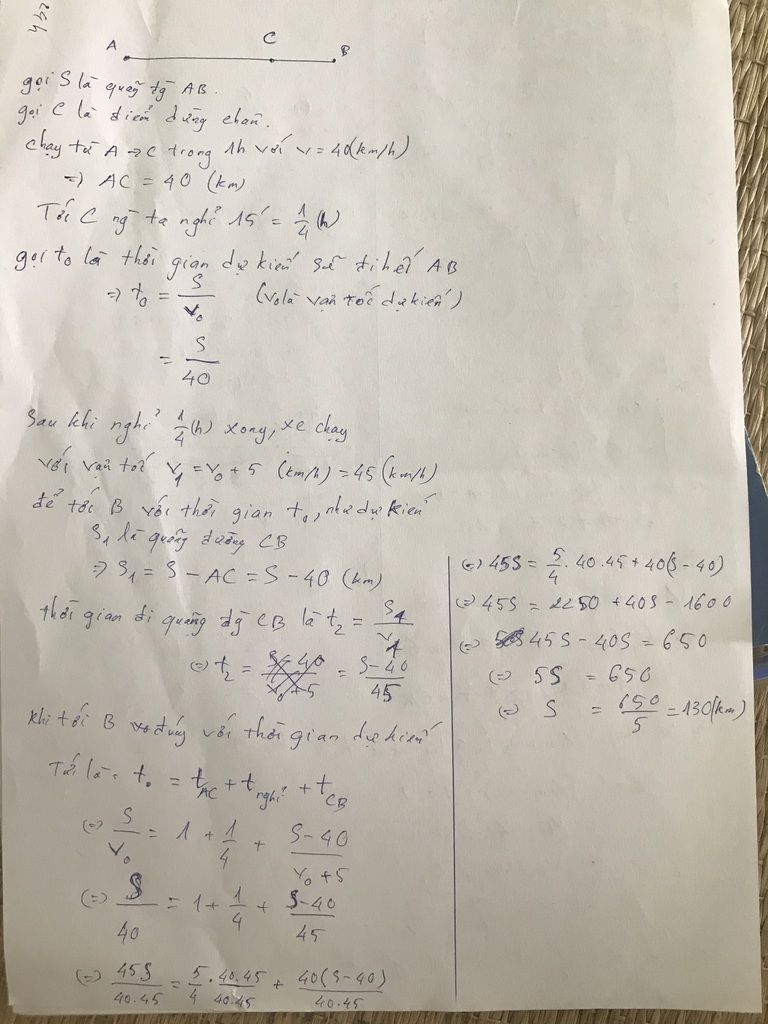 A C B
gọi S là quãng đg AB.
gọi C là điểm dừng chân.
chạy từ A → C trong 1h với v = 40(km/h)
=> AC = 40 (km)
Tới C ng ta nghỉ 15' = 1/4 (h)
gọi t₀ là thời gian dự kiến sẽ đi hết AB
=> t₀ = S/v₀ (v₀ là vận tốc dự kiến)
= S/40
Sau khi nghỉ 1/4(h) xong, xe chạy
với vận tốc v₁ = v₀ + 5 (km/h) = 45 (km/h)
để tới B với thời gian t₀, như dự kiến
S₁ là quãng đường CB
=> S₁ = S - AC = S - 40 (km)
thời gian đi quãng đg CB là t₂ = S₁/v₁
(=) t₂ = S-40/v₀+5 = S-40/45
khi tới B đúng với thời gian dự kiến
Tức là: t₀ = t_AC + t_nghỉ + t_CB
(=) S/v₀ = 1 + 1/4 + S-40/v₀+5
(=) S/40 = 1 + 1/4 + S-40/45
(=) 45S/40.45 = 5/4 . 40.45/40.45 + 40(S-40)/40.45
(=) 45S = 5/4 . 40.45 + 40(S - 40)
(=) 45S = 2250 + 40S - 1600
(=) 45S - 40S = 650
(=) 5S = 650
(=) S = 650/5 = 130(km)